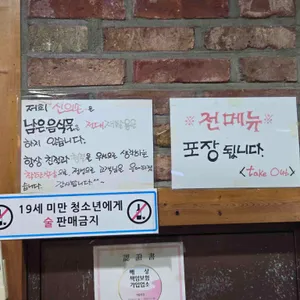 저희 신의손 은
남은 음식물은 절대 재활용을
하지 않습니다.
항상 친절과 을 우선으로 생각하는
으로, 고객님을 모시겠습
니다. 감사합니다.^^
※전메뉴※
포장 됩니다.
<take out>
19세 미만 청소년에게
술 판매금지
배상
책임보험
가입업소